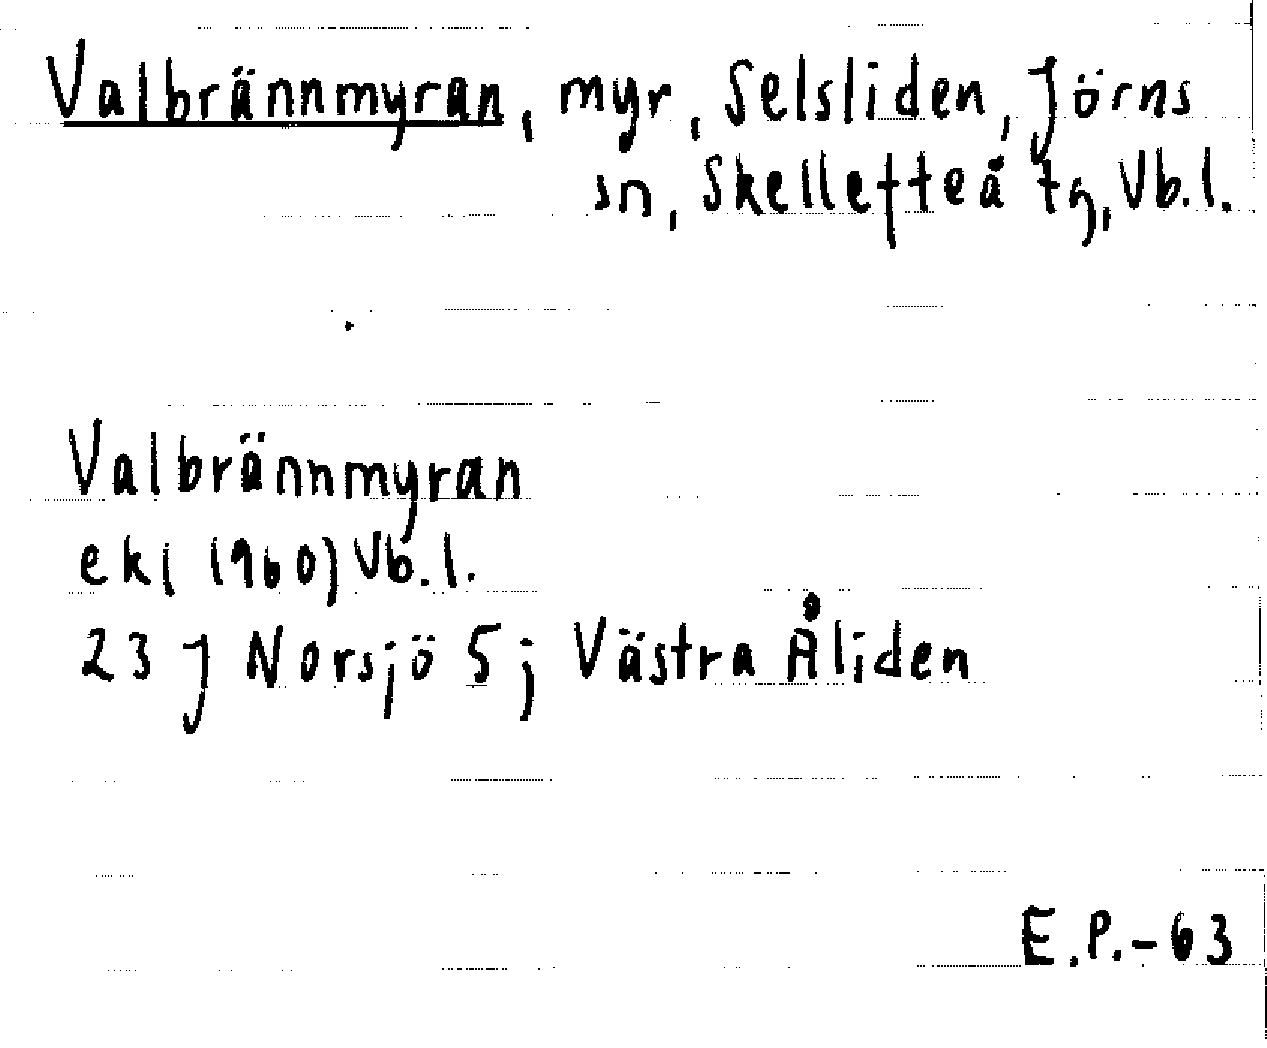 Valbrännmyran, myr, Selsliden, Jörns
sn, Skellefteå tg, Vb.l.
Valbrännmyran
ek (1960) Vb.l.
23 J Norsjö 5j Västra Åliden
E.P.-63